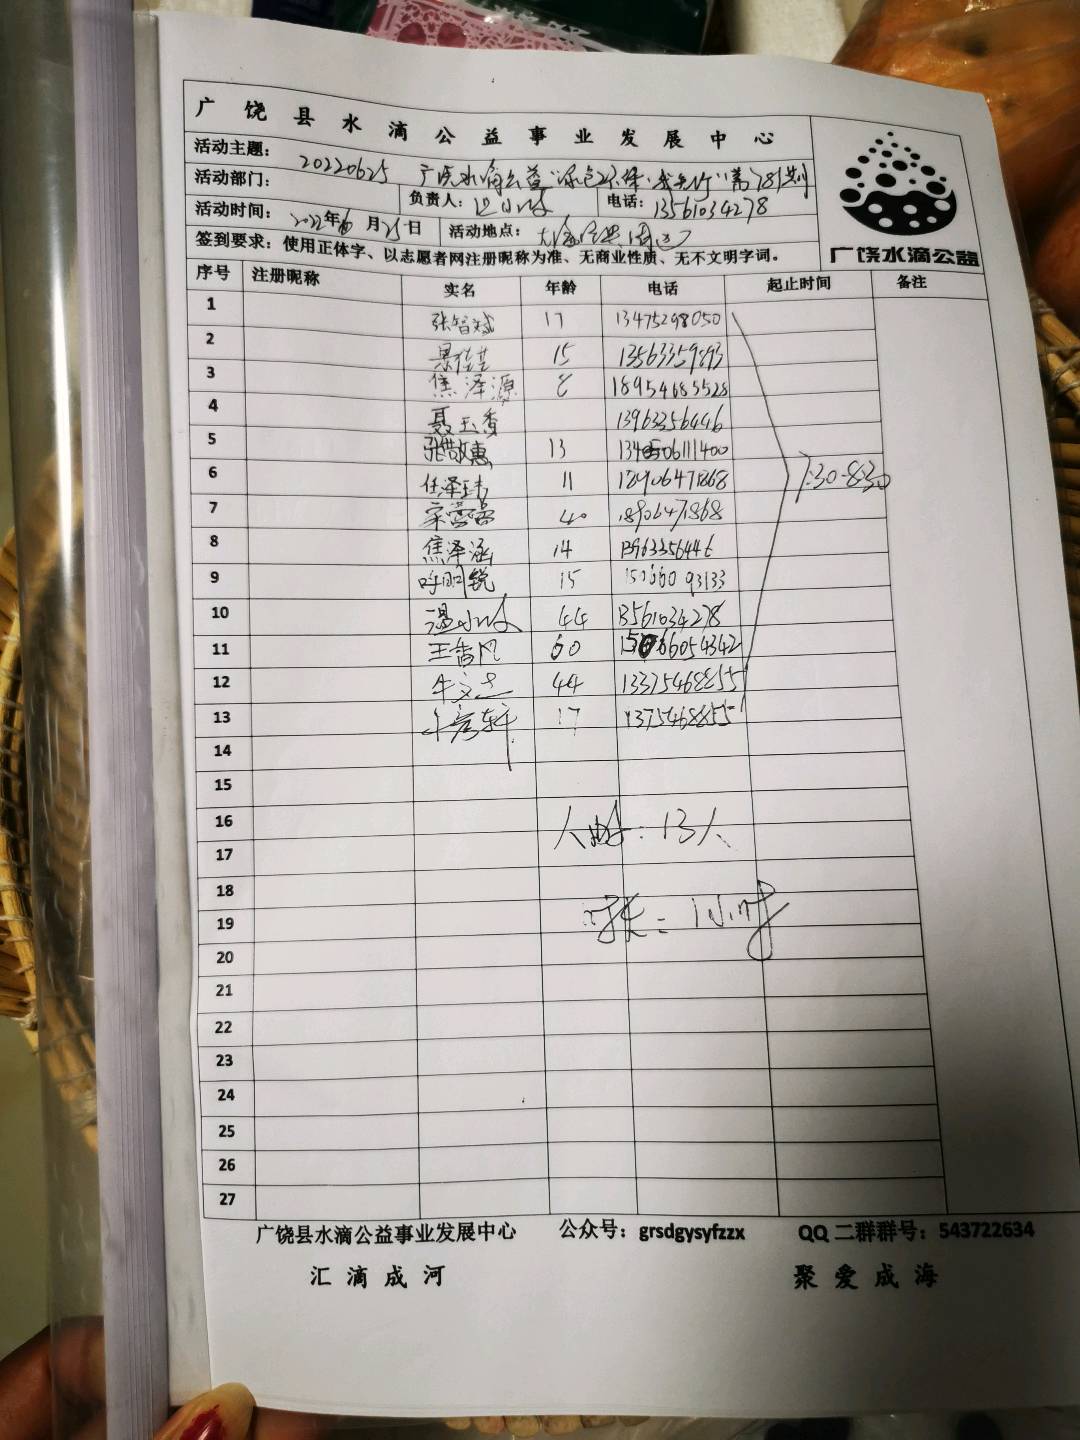 广饶县水滴公益事业发展中心
活动主题： 20220625 广饶水滴公益"绿色环保·我先行"第781期
活动部门： 负责人： 电话：13561034278
活动时间：2022年6月25日 活动地点：
签到要求：使用正体字、以志愿者网注册昵称为准、无商业性质、无不文明字词。
广饶水滴公益
序号 注册昵称 实名 年龄 电话 起止时间 备注
1 张智斌 17 13475298050
2 15 13563359893
3 焦泽源 8 18954685528
4 聂玉香 13963356446
5 张敬惠 13
6 任泽玮 11 18906471868
7 40 18906471868
8 焦泽涵 14 13963356446
9 呼明锐 15 15066093133
10 44 13561034278
11 王香凤 60 15066054342
12 44 13375468855
13 17 13375468855
7:30-8:30
14
15
16
人数：13人
17
18
19
时长：1小时
20
21
22
23
24
25
26
27
广饶县水滴公益事业发展中心 公众号：grsdgysyfzzx QQ二群群号：543722634
汇滴成河 聚爱成海